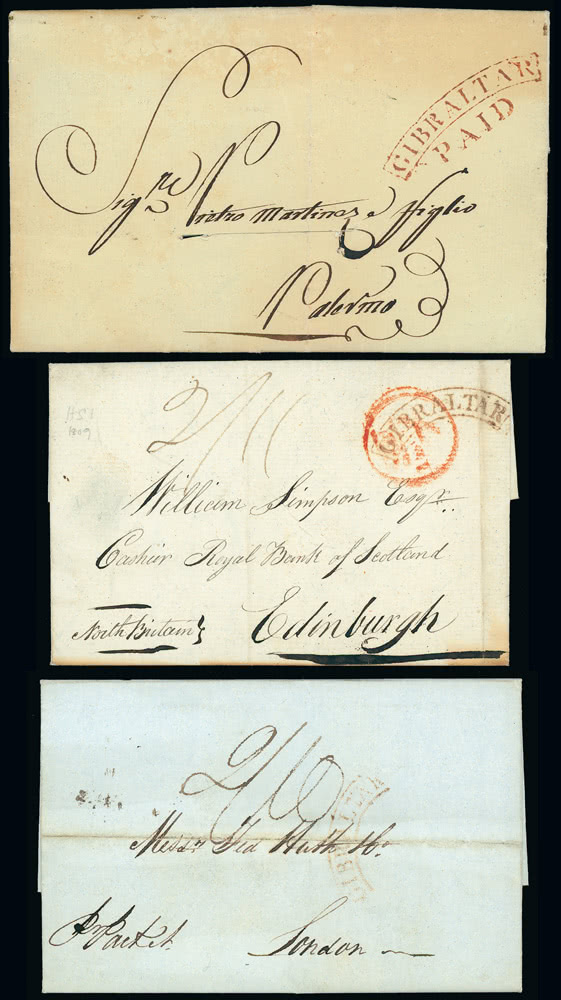 GIBRALTAR
PAID
Sigre Pietro Martinez e ffiglio
Palermo
2/11
1809
GIBRALTAR
William Simpson Esqr.
Cashier Royal Bank of Scotland
North Britain} Edinburgh
2/10
GIBRALTAR
Messrs Fred Huth & Co.
pr Packet. London